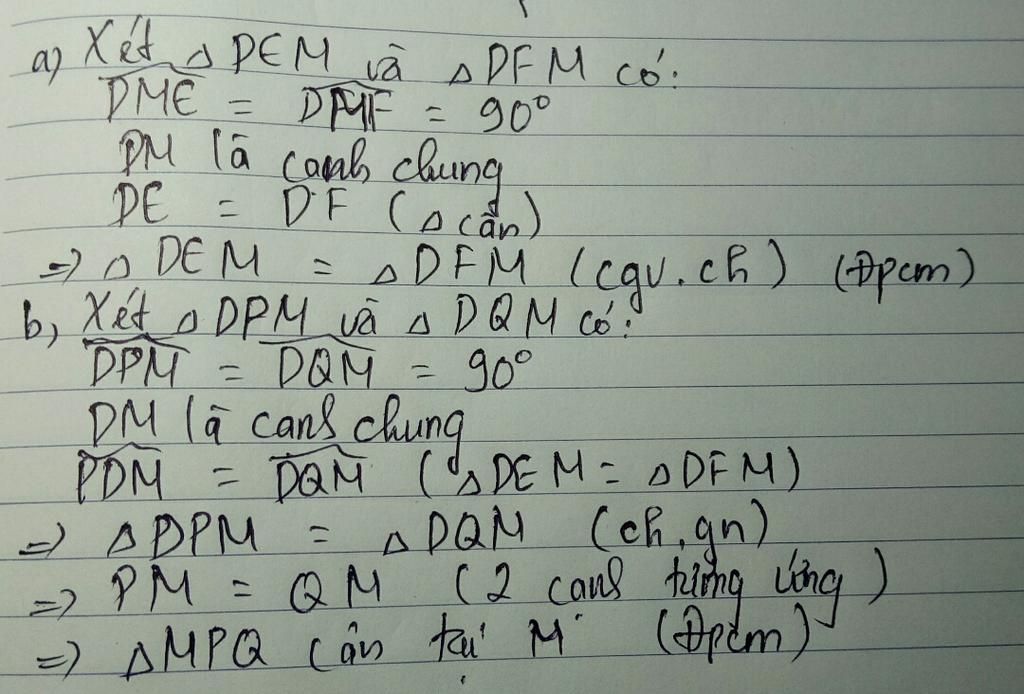 a) Xét △ DEM và △ DFM có:
DME = DMF = 90°
DM là cạnh chung
DE = DF (△ cân)
=> △ DEM = △ DFM (cgv.ch) (Đpcm)
b, Xét △ DPM và △ DQM có:
DPM = DQM = 90°
DM là cạnh chung
PDM = DQM (△DEM = △DFM)
=> △ DPM = △ DQM (ch, gn)
=> PM = QM (2 cạnh tương ứng)
=> △MPQ cân tại M (Đpcm)